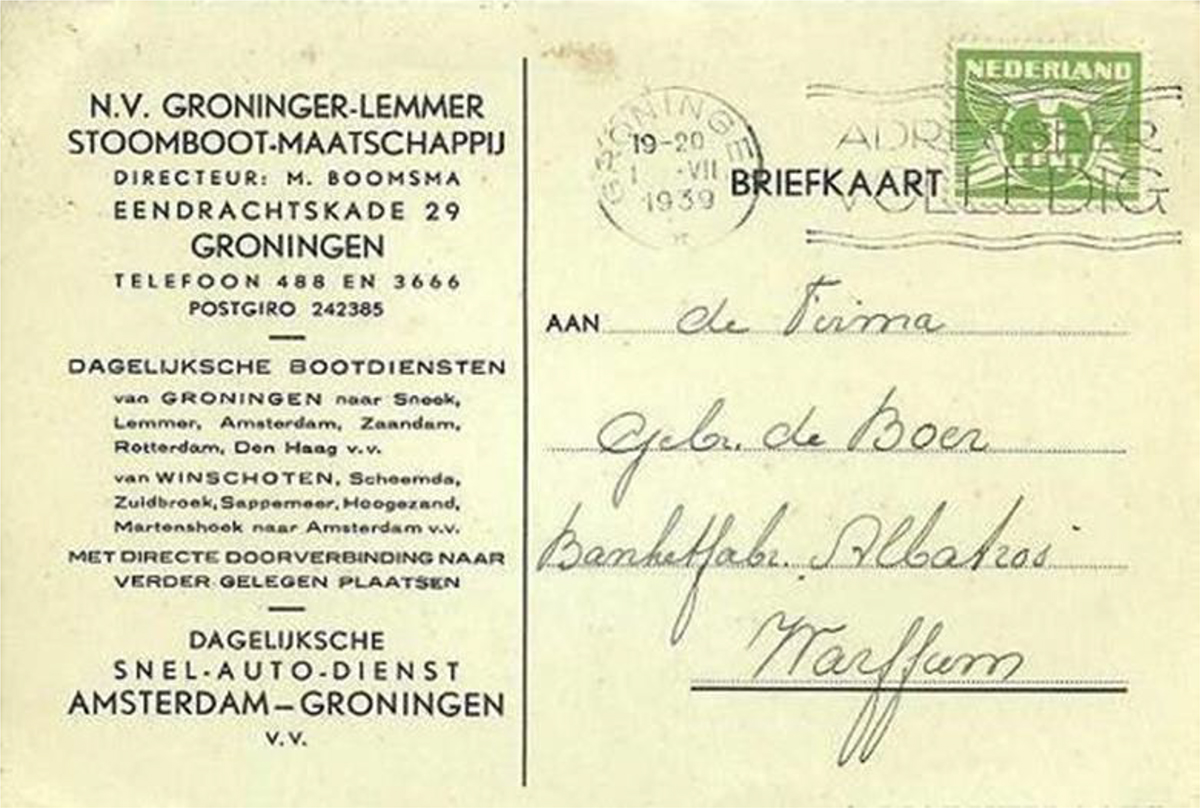 N.V. GRONINGER-LEMMER
STOOMBOOT-MAATSCHAPPIJ
DIRECTEUR: M. BOOMSMA
EENDRACHTSKADE 29
GRONINGEN
TELEFOON 488 EN 3666
POSTGIRO 242385
DAGELIJKSCHE BOOTDIENSTEN
van GRONINGEN naar Sneek,
Lemmer, Amsterdam, Zaandam,
Rotterdam, Den Haag v.v.
van WINSCHOTEN, Scheemda,
Zuidbroek, Sappemeer, Hoogezand,
Martenshoek naar Amsterdam v.v.
MET DIRECTE DOORVERBINDING NAAR
VERDER GELEGEN PLAATSEN
DAGELIJKSCHE
SNEL-AUTO-DIENST
AMSTERDAM–GRONINGEN
v.v.
NEDERLAND
CENT
GRONINGE
19-20
1 -VII
1939
ADRESSEER
VOLLEDIG
BRIEFKAART
AAN de Firma
Gebr. de Boer
Banketfabr. Albatros
Warffum